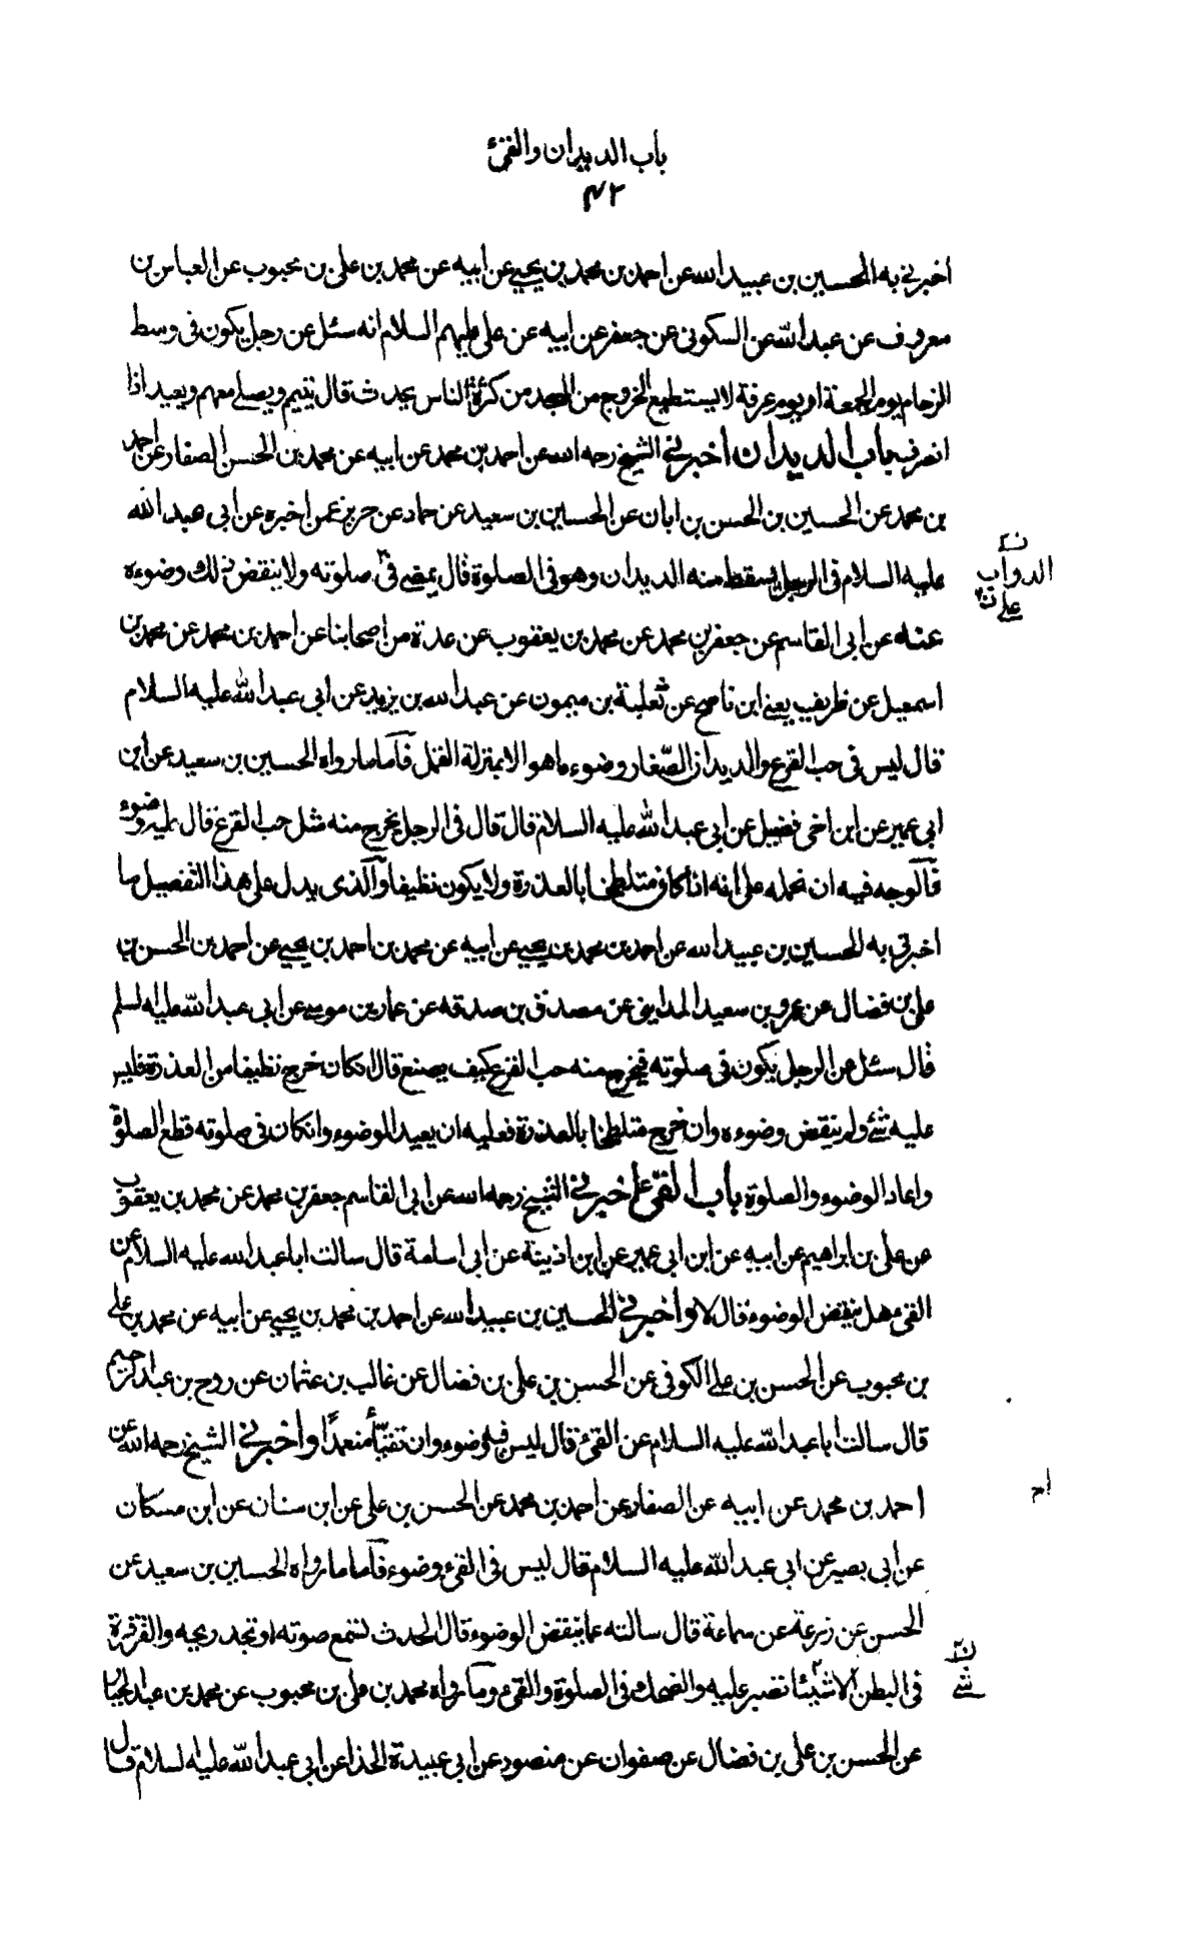 باب الديدان والقيء
۴۲
اخبرني به الحسين بن عبيد الله عن احمد بن محمد بن يحيى عن ابيه عن محمد بن على بن محبوب عن العباس بن
معروف عن عبد الله عن السكونى عن جعفر عن ابيه عن على عليهم السلام انه سئل عن رجل يكون فى وسط
الزحام يوم الجمعة او يوم عرفة لا يستطيع الخروج من المسجد من كثرة الناس يحدث قال يتيمم ويصلى معهم ويعيد اذا
انصرف باب الديدان اخبرني الشيخ رحمه الله عن احمد بن محمد عن ابيه عن محمد بن الحسن الصفار عن احمد
بن محمد عن الحسين بن الحسن بن ابان عن الحسين بن سعيد عن حماد عن حريز عمن اخبره عن ابى عبد الله
عليه السلام فى الرجل يسقط منه الديدان وهو فى الصلوة قال يمضى فى صلوته ولا ينقض ذلك وضوءه
ن
الدواب
على ن
عنه عن ابى القاسم عن جعفر بن محمد عن محمد بن يعقوب عن عدة من اصحابنا عن احمد بن محمد عن محمد بن
اسمعيل عن ظريف يعنى ابن ناصح عن ثعلبة بن ميمون عن عبد الله بن يزيد عن ابى عبد الله عليه السلام
قال ليس فى حب القرع والديدان الصّغار وضوء ما هو الا بمنزلة القمل فآما ما رواه الحسين بن سعيد عن ابن
ابى عمير عن ابن اخى فضيل عن ابى عبد الله عليه السلام قال قال فى الرجل يخرج منه مثل حب القرع قال عليه وضوء
فآلوجه فيه ان نحمله على انه اذا كان متلطخا بالعذرة ولا يكون نظيفا وآلذى يدل على هذا التفصيل ما
اخبرنى به الحسين بن عبيد الله عن احمد بن محمد بن يحيى عن ابيه عن محمد بن احمد بن يحيى عن احمد بن الحسن بن
على بن فضال عن عمرو بن سعيد المداينى عن مصدق بن صدقه عن عمار بن موسى عن ابى عبد الله عليه السلم
قال سئل عن الرجل يكون فى صلوته فيخرج منه حب القرع كيف يصنع قال ان كان خرج نظيفا من العذرة فليس
عليه شئ ولم ينقض وضوءه وان خرج متلطخا بالعذرة فعليه ان يعيد الوضوء وانكان فى صلوته قطع الصلوة
واعاد الوضوء والصلوة باب القيء اخبرني الشيخ رحمه الله عن ابى القاسم جعفر بن محمد عن محمد بن يعقوب
عن على بن ابراهيم عن ابيه عن ابن ابى عمير عن ابن اذينة عن ابى اسامة قال سالت ابا عبد الله عليه السلام عن
القىء هل ينقض الوضوء قال لا واخبرني الحسين بن عبيد الله عن احمد بن محمد بن يحيى عن ابيه عن محمد بن على
بن محبوب عن الحسن بن على الكوفى عن الحسن بن على بن فضال عن غالب بن عثمان عن روح بن عبد الرحيم
قال سالت ابا عبد الله عليه السلام عن القىء قال ليس فيه وضوء وان تقيّأ متعمدًا واخبرني الشيخ رحمه الله عن
احمد بن محمد عن ابيه عن الصفار عن احمد بن محمد عن الحسن بن على عن ابن سنان عن ابن مسكان
عن ابى بصير عن ابى عبد الله عليه السلام قال ليس فى القىء وضوء فآما ما رواه الحسين بن سعيد عن
الحسن عن زرعة عن سماعة قال سالته عما ينقض الوضوء قال الحدث تسمع صوته او تجد ريحه والقرقرة
فى البطن الا شيئا تصبر عليه والضحك فى الصلوة والقىء ومآ رواه محمد بن على بن محبوب عن محمد بن عبد الجبار
عن الحسن بن على بن فضال عن صفوان عن منصور عن ابى عبيدة الحذا عن ابى عبد الله عليه السلام قال